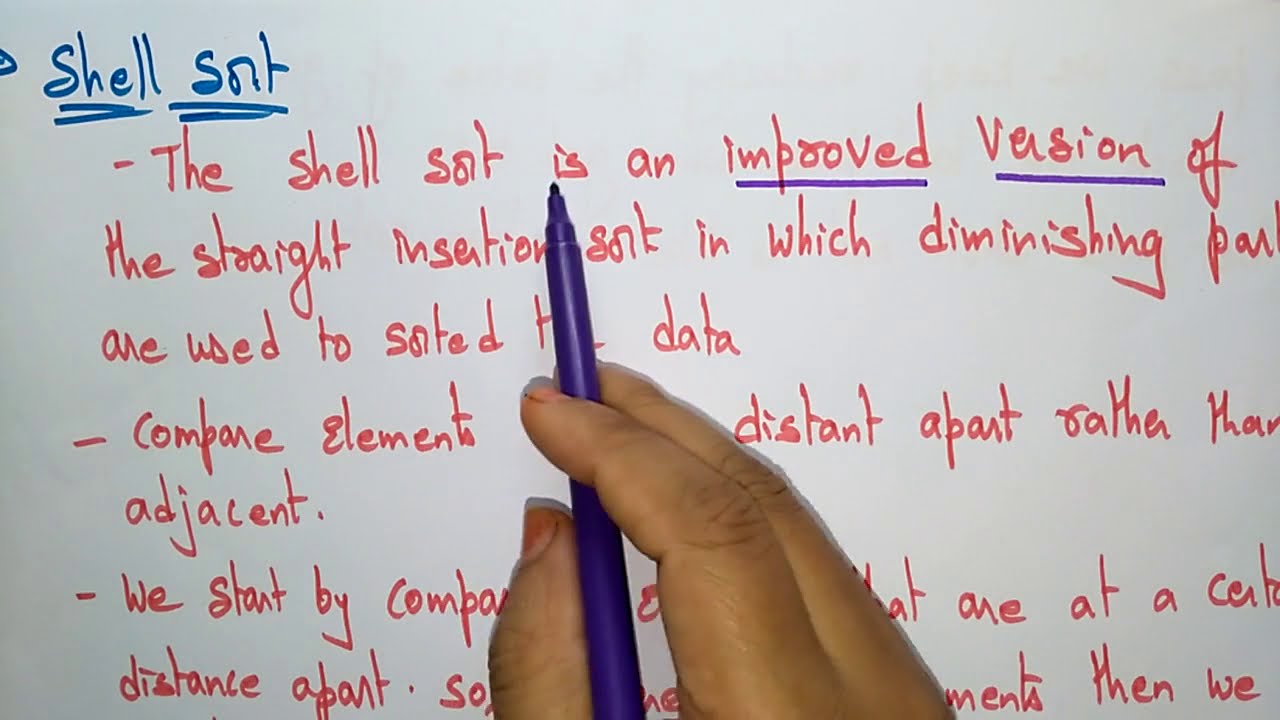 Shell Sort
- The shell sort is an improved version of
the straight insertion sort in which diminishing
are used to sorted data
- Compare Elements distant apart rather than
adjacent.
- We start by are at a
distance apart. then we